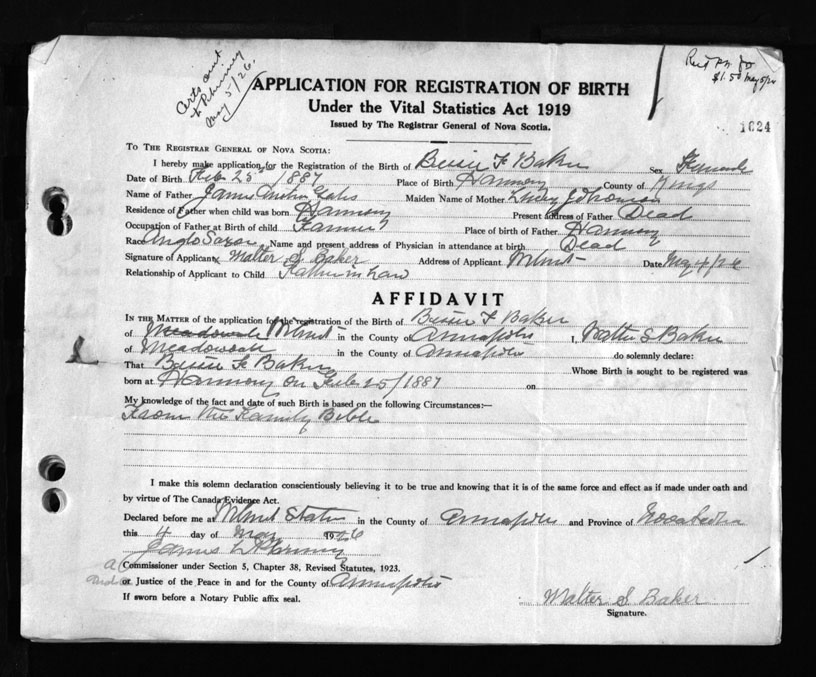 Certs out
to Phinney
May 5/26.
$1.50 May 5/26
1624
APPLICATION FOR REGISTRATION OF BIRTH
Under the Vital Statistics Act 1919
Issued by The Registrar General of Nova Scotia.
TO THE REGISTRAR GENERAL OF NOVA SCOTIA:
I hereby make application for the Registration of the Birth of Bessie F Baker Sex Female
Date of Birth Feb 25th /1887 Place of Birth Harmony County of Kings
Name of Father James Maiden Name of Mother
Residence of Father when child was born Harmony Present address of Father Dead
Occupation of Father at Birth of child Farmer Place of birth of Father Harmony
Race Anglo Saxon Name and present address of Physician in attendance at birth Dead
Signature of Applicant Walter S. Baker Address of Applicant Date May 4/26
Relationship of Applicant to Child Father in Law
AFFIDAVIT
IN THE MATTER of the application for the registration of the Birth of Bessie F Baker
of Meadowvale in the County of Annapolis I, Walter S Baker
of Meadowvale in the County of Annapolis do solemnly declare:
That Bessie F Baker Whose Birth is sought to be registered was
born at Harmony on Feb 25/1887 on
My knowledge of the fact and date of such Birth is based on the following Circumstances:—
From the Family Bible
I make this solemn declaration conscientiously believing it to be true and knowing that it is of the same force and effect as if made under oath and
by virtue of The Canada Evidence Act.
Declared before me at in the County of Annapolis and Province of Nova Scotia
this 4 day of May 1926
James Phinney
A Commissioner under Section 5, Chapter 38, Revised Statutes, 1923.
or Justice of the Peace in and for the County of Annapolis
If sworn before a Notary Public affix seal.
Walter S Baker
Signature.